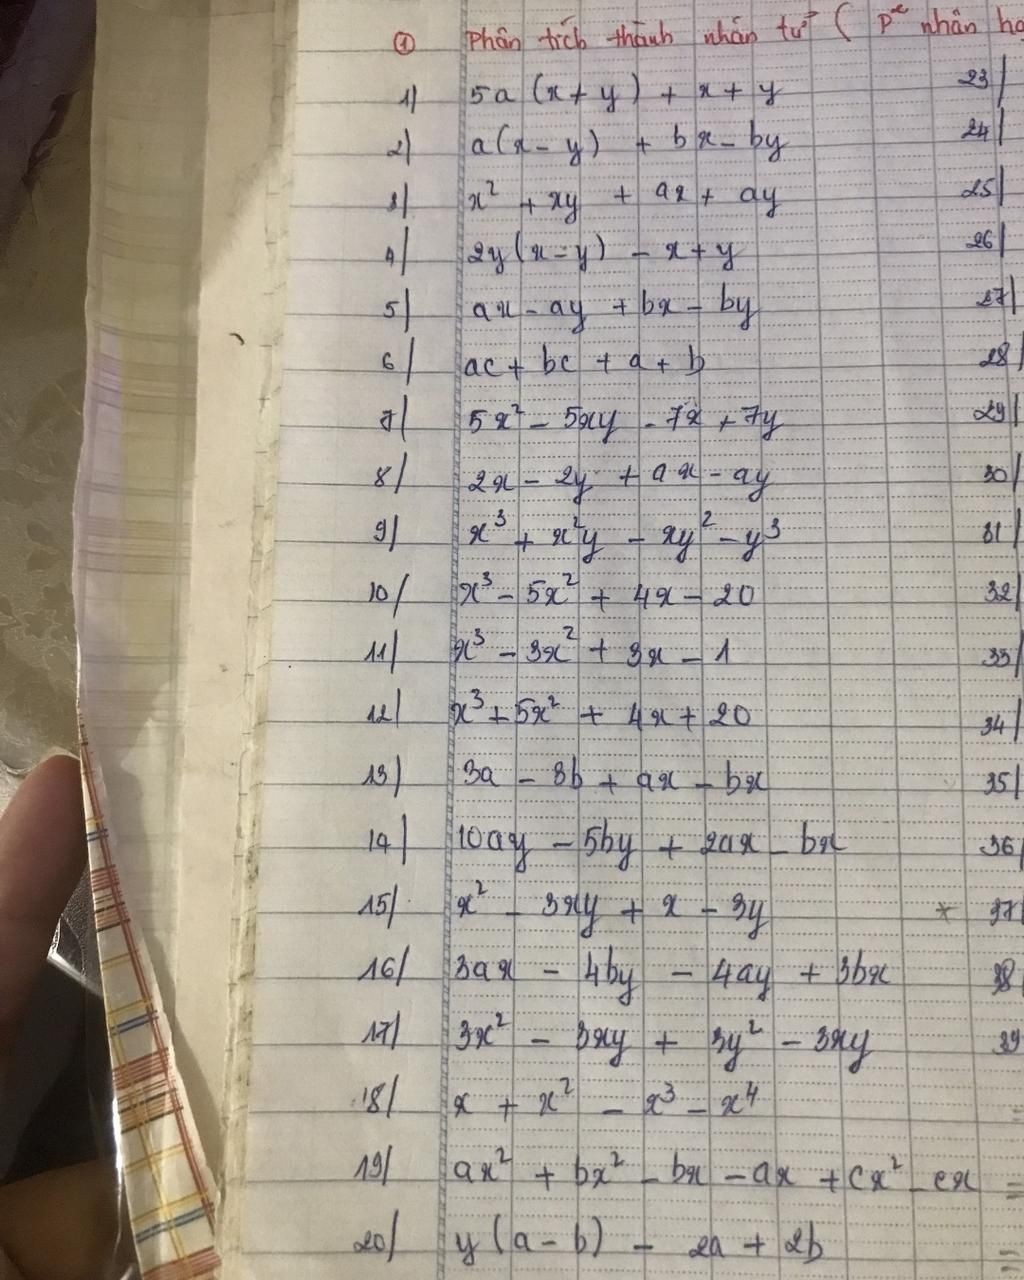 ① Phân tích thành nhân tử ( P² nhân
1) 5a (x + y) + x + y 23/
2) a(x - y) + bx - by 24/
3) x² + xy + ax + ay 25/
4) 2y (x - y) - x + y 26/
5) ax - ay + bx - by 27/
6) ac + bc + a + b 28/
7) 5x² - 5xy - 7x + 7y 29/
8) 2x - 2y + ax - ay 30/
9) x³ + x²y - xy² - y³ 31/
10/ x³ - 5x² + 4x - 20 32/
11/ x³ - 3x² + 3x - 1 33/
12/ x³ + 5x² + 4x + 20 34/
13/ 3a - 3b + ax - bx 35/
14/ 10ay - 5by + 2ax - bx 36/
15/ x² - 3xy + x - 3y * 37/
16/ 3ax - 4by - 4ay + 3bx 38
17/ 3x² - 3xy + 3y² - 3xy 39
18/ x + x² - x³ - x⁴ =
19/ ax² + bx² - bx - ax + cx² - cx =
20/ y (a - b) - 2a + 2b =